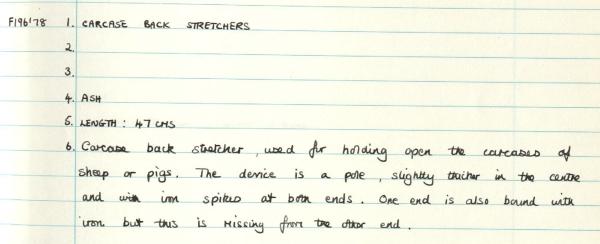 F196'78 1. CARCASE BACK STRETCHERS
2.
3.
4. ASH
5. LENGTH : 47 CMS
6. Carcase back stretcher, used for holding open the carcases of
sheep or pigs. The device is a pole, slightly thicker in the centre
and with iron spikes at both ends. One end is also bound with
iron but this is missing from the other end.